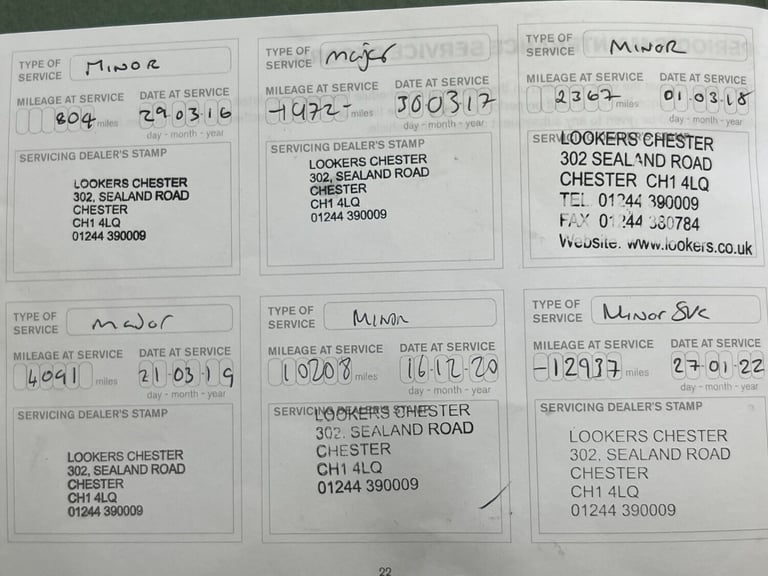 TYPE OF SERVICE MINOR
MILEAGE AT SERVICE DATE AT SERVICE
804 miles 29 03 16
day - month - year
SERVICING DEALER'S STAMP
LOOKERS CHESTER
302, SEALAND ROAD
CHESTER
CH1 4LQ
01244 390009
TYPE OF SERVICE major
MILEAGE AT SERVICE DATE AT SERVICE
-1972- miles 30 03 17
day - month - year
SERVICING DEALER'S STAMP
LOOKERS CHESTER
302, SEALAND ROAD
CHESTER
CH1 4LQ
01244 390009
TYPE OF SERVICE MINOR
MILEAGE AT SERVICE DATE AT SERVICE
2367 miles 01.03.18
day - month - year
LOOKERS CHESTER
302 SEALAND ROAD
CHESTER CH1 4LQ
TEL 01244 390009
FAX 01244 380784
Website. www.lookers.co.uk
TYPE OF SERVICE major
MILEAGE AT SERVICE DATE AT SERVICE
4091 miles 21-03-19
day - month - year
SERVICING DEALER'S STAMP
LOOKERS CHESTER
302, SEALAND ROAD
CHESTER
CH1 4LQ
01244 390009
TYPE OF SERVICE MINOR
MILEAGE AT SERVICE DATE AT SERVICE
10208 miles 16-12-20
day - month - year
SERVICING DEALER'S STAMP
LOOKERS CHESTER
302. SEALAND ROAD
CHESTER
CH1 4LQ
01244 390009
TYPE OF SERVICE Minor SVC
MILEAGE AT SERVICE DATE AT SERVICE
-12937 miles 27-01-22
day - month - year
SERVICING DEALER'S STAMP
LOOKERS CHESTER
302, SEALAND ROAD
CHESTER
CH1 4LQ
01244 390009
22